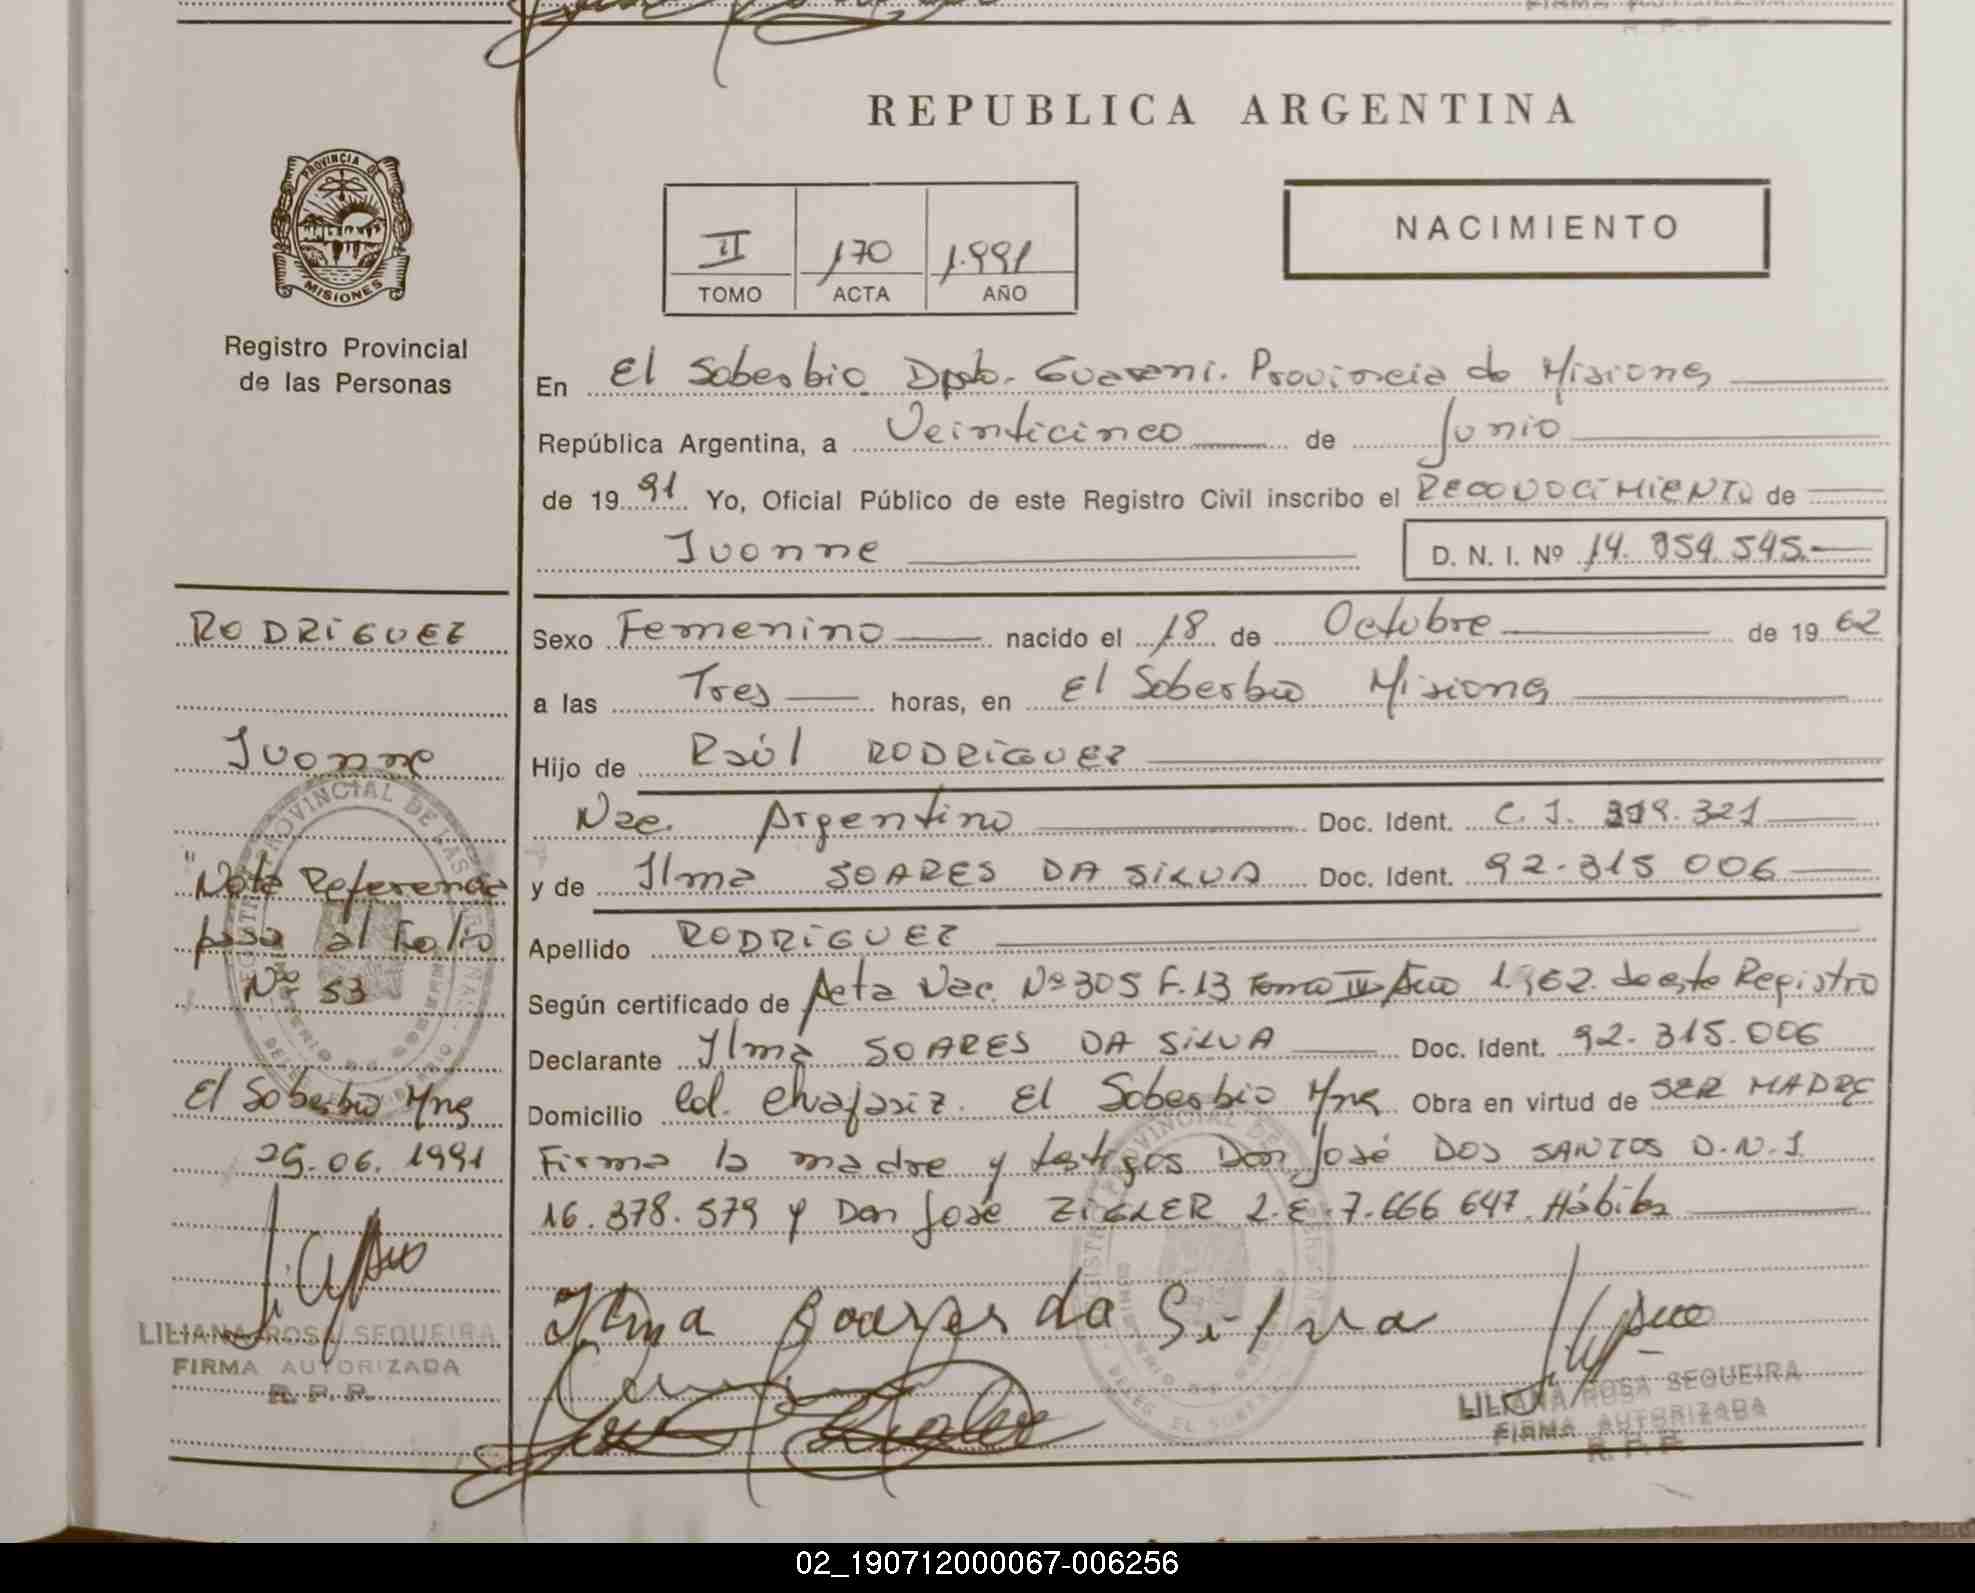 REPUBLICA ARGENTINA
PROVINCIA DE
MISIONES
NACIMIENTO
II 170 1.991
TOMO ACTA AÑO
Registro Provincial
de las Personas
En El Soberbio Dpto. Guarani. Provincia de Misiones
República Argentina, a Veinticinco de Junio
de 1991 Yo, Oficial Público de este Registro Civil inscribo el RECONOCIMIENTO de
Ivonne D. N. I. Nº 14. 854. 545.
RODRIGUEZ
Ivonne
"Nota Referencia
pasa al Folio
Nº 53
El Soberbio Mns
25.06.1991
LILIANA ROSA SEQUEIRA
FIRMA AUTORIZADA
R. P. P.
Sexo Femenino nacido el 18 de Octubre de 1962
a las Tres horas, en El Soberbio Misiones
Hijo de Raúl RODRIGUEZ
Nac. Argentino Doc. Ident. C. I. 321
y de Ilma SOARES DA SILVA Doc. Ident. 92.315 006
Apellido RODRIGUEZ
Según certificado de Acta Nac. Nº 305 F. 13 Tomo II Año 1.962. de este Registro
Declarante Ilma SOARES DA SILVA Doc. Ident. 92.315.006
Domicilio Col. El Soberbio Mns Obra en virtud de SER MADRE
Firma la madre y testigos Don José DOS SANTOS D.N.I.
16.378.579 y Don José ZIGLER L.E. 7.666 647. Hábiles
Ilma Soares da Silva
LILIANA ROSA SEQUEIRA
FIRMA AUTORIZADA
R. P. P.
02_190712000067-006256